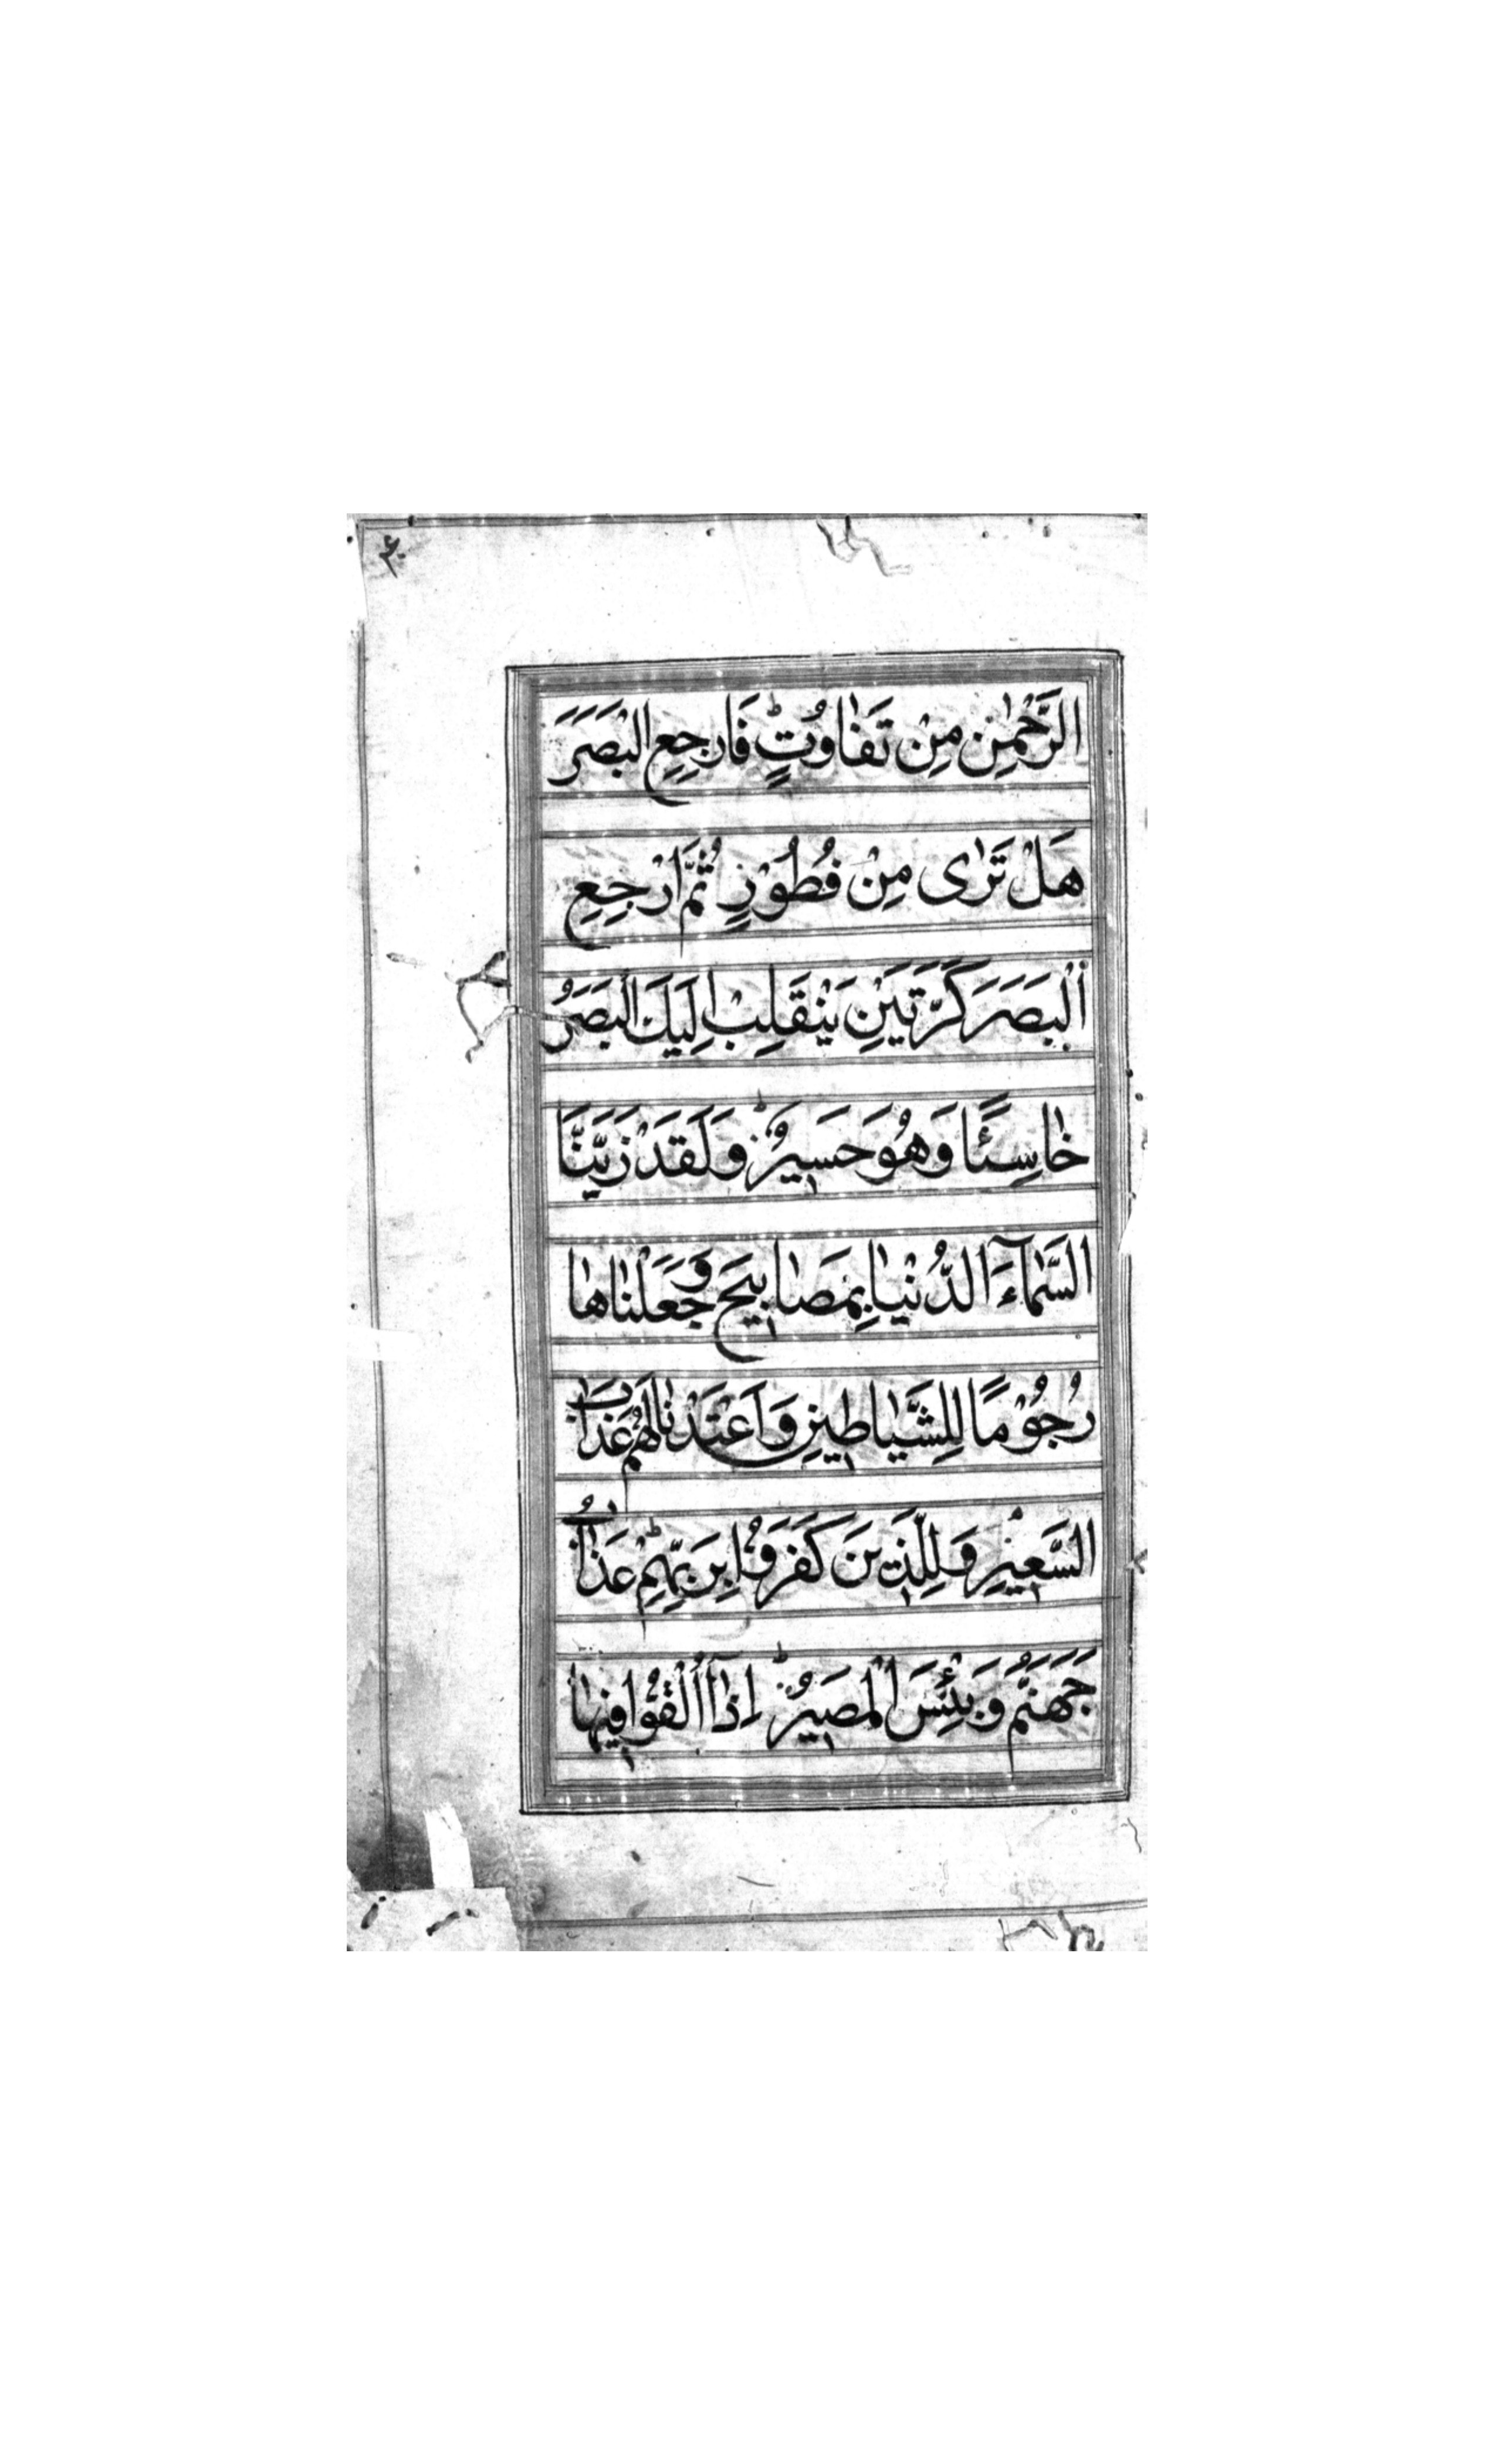 الرَّحْمٰنِ مِنْ تَفٰاوُتٍ فَارْجِعِ الْبَصَرَ
هَلْ تَرٰى مِنْ فُطُوْرٍ ثُمَّ ارْجِعِ
الْبَصَرَ كَرَّتَيْنِ يَنْقَلِبْ اِلَيْكَ الْبَصَرُ
خٰاسِئًا وَهُوَ حَسِيْرٌ وَلَقَدْ زَيَّنَّا
السَّمٰآءَ الدُّنْيٰا بِمَصٰابِيْحَ وَجَعَلْنٰاهٰا
رُجُوْمًا لِلشَّيٰاطِيْنِ وَاَعْتَدْنٰا لَهُمْ عَذٰابَ
السَّعِيْرِ وَلِلَّذِيْنَ كَفَرَوُا بِرَبِّهِمْ عَذٰابُ
جَهَنَّمَ وَبِئْسَ الْمَصِيْرُ اِذٰا اُلْقُوْا فِيْهٰا